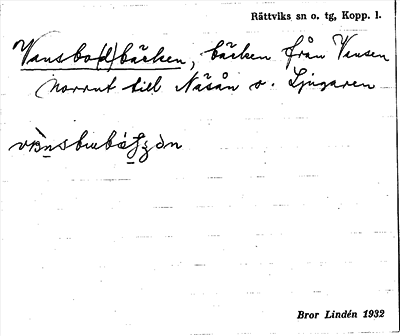 Rättviks sn o. tg, Kopp. l.
Vansbo(d)bäcken, bäcken från Vansen
norrut till Näsån o. Ljugaren
Bror Lindén 1932